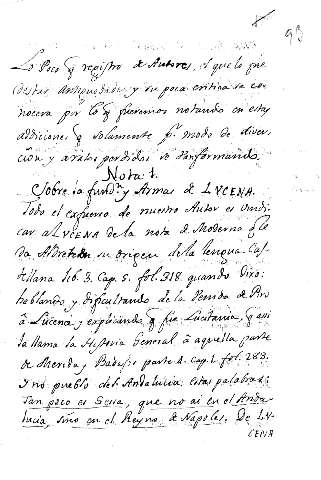 93
Lo Poco q registro de Autores, i que lo fue
destas antiguedades y su poca critica se co-
nocera por lo q fueramos notando en estas
addiciones q solamente pr. modo de diver-
cion y a ratos perdidos se van formando
Nota 1.
Sobre la fundn. y Armas de LVCENA.
Todo el esfuerso de nuestro Autor es vindi-
car a LVCENA de la nota de Moderno q le
da Aldrete en su origen de la lengua Cas-
tellana lib. 3. Cap. 5. fol. 318. quando Dixo:
hablando y dificultando de la Venida de Piro
â Lucena, y explicando q fue Lucitania, q asi
la llama la Historia General à aquella parte
de Merida, y Badajos parte 1. cap. 1. fol. 283.
Y no pueblo del Andalucia: estas palabras:
Tan poco es Sesa, que no ai en el Anda-
lucia, sino en el Reyno de Napoles. De LV-
CENA